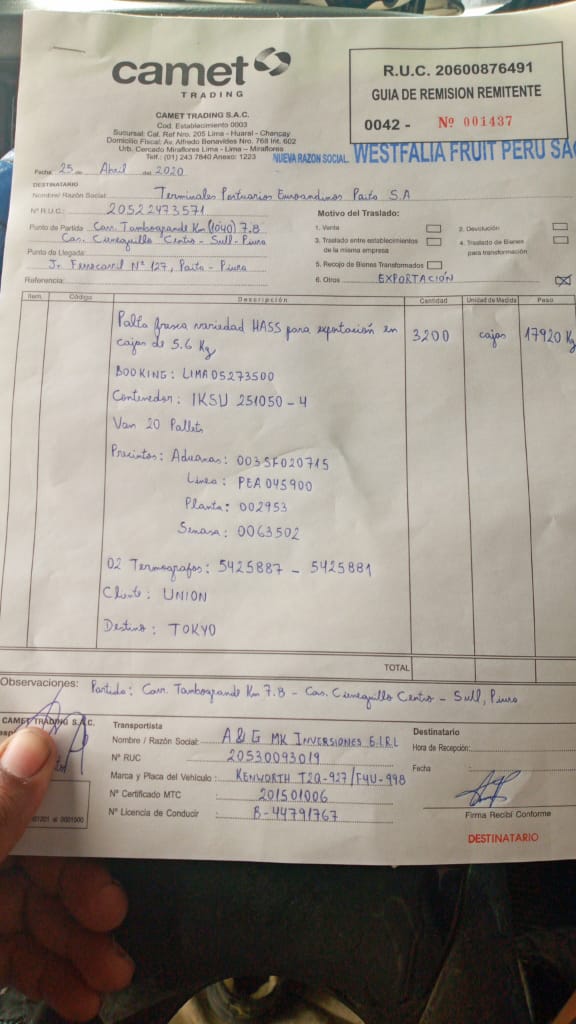 camet
TRADING
CAMET TRADING S.A.C.
Cod. Establecimiento 0003
Sucursal: Cal. Ref Nro. 205 Lima - Huaral - Chancay
Domicilio Fiscal: Av. Alfredo Benavides Nro. 768 Int. 602
Urb. Cercado Miraflores Lima - Lima - Miraflores
Telf.: (01) 243 7840 Anexo: 1223
R.U.C. 20600876491
GUIA DE REMISION REMITENTE
0042 - Nº 001437
NUEVA RAZON SOCIAL: WESTFALIA FRUIT PERU SA
Fecha: 25 de Abril del 2020
DESTINATARIO
Nombre/ Razón Social: Terminales Portuarios Euroandinos Paita S.A
Nº R.U.C: 20522473571
Punto de Partida: Carr. Tambogrande Km (1040) 7.8
Cas. Cieneguillo Centro - Sull - Piura
Punto de Llegada:
Jr. Ferrocarril Nº 127, Paita - Piura
Referencia:
Motivo del Traslado:
1. Venta
2. Devolución
3. Traslado entre establecimientos de la misma empresa
4. Traslado de Bienes para transformación
5. Recojo de Bienes Transformados
6. Otros EXPORTACIÓN
Item. Código Descripción Cantidad Unidad de Medida Peso
Palta fresca variedad HASS para exportación en 3200 cajas 17920 Kg
cajas de 5.6 Kg
BOOKING: LIMA05273500
Contenedor: IKSU 251050-4
Van 20 Pallets
Precintos: Aduanas: 003SF020715
Línea: PEA045900
Planta: 002953
Senasa: 0063502
02 Termografos: 5425887 - 5425881
Cliente: UNION
Destino: TOKYO
TOTAL
Observaciones: Partida: Carr. Tambogrande Km 7.8 - Cas. Cieneguillo Centro - Sull, Piura
CAMET TRADING S.A.C.
Transportista
Nombre / Razón Social: A & G MK INVERSIONES E.I.R.L
Nº RUC : 20530093019
Marca y Placa del Vehículo : KENWORTH T2Q-927/F4U-998
Nº Certificado MTC : 201501006
Nº Licencia de Conducir : B-44791767
Destinatario
Hora de Recepción:
Fecha :
Firma Recibí Conforme
DESTINATARIO